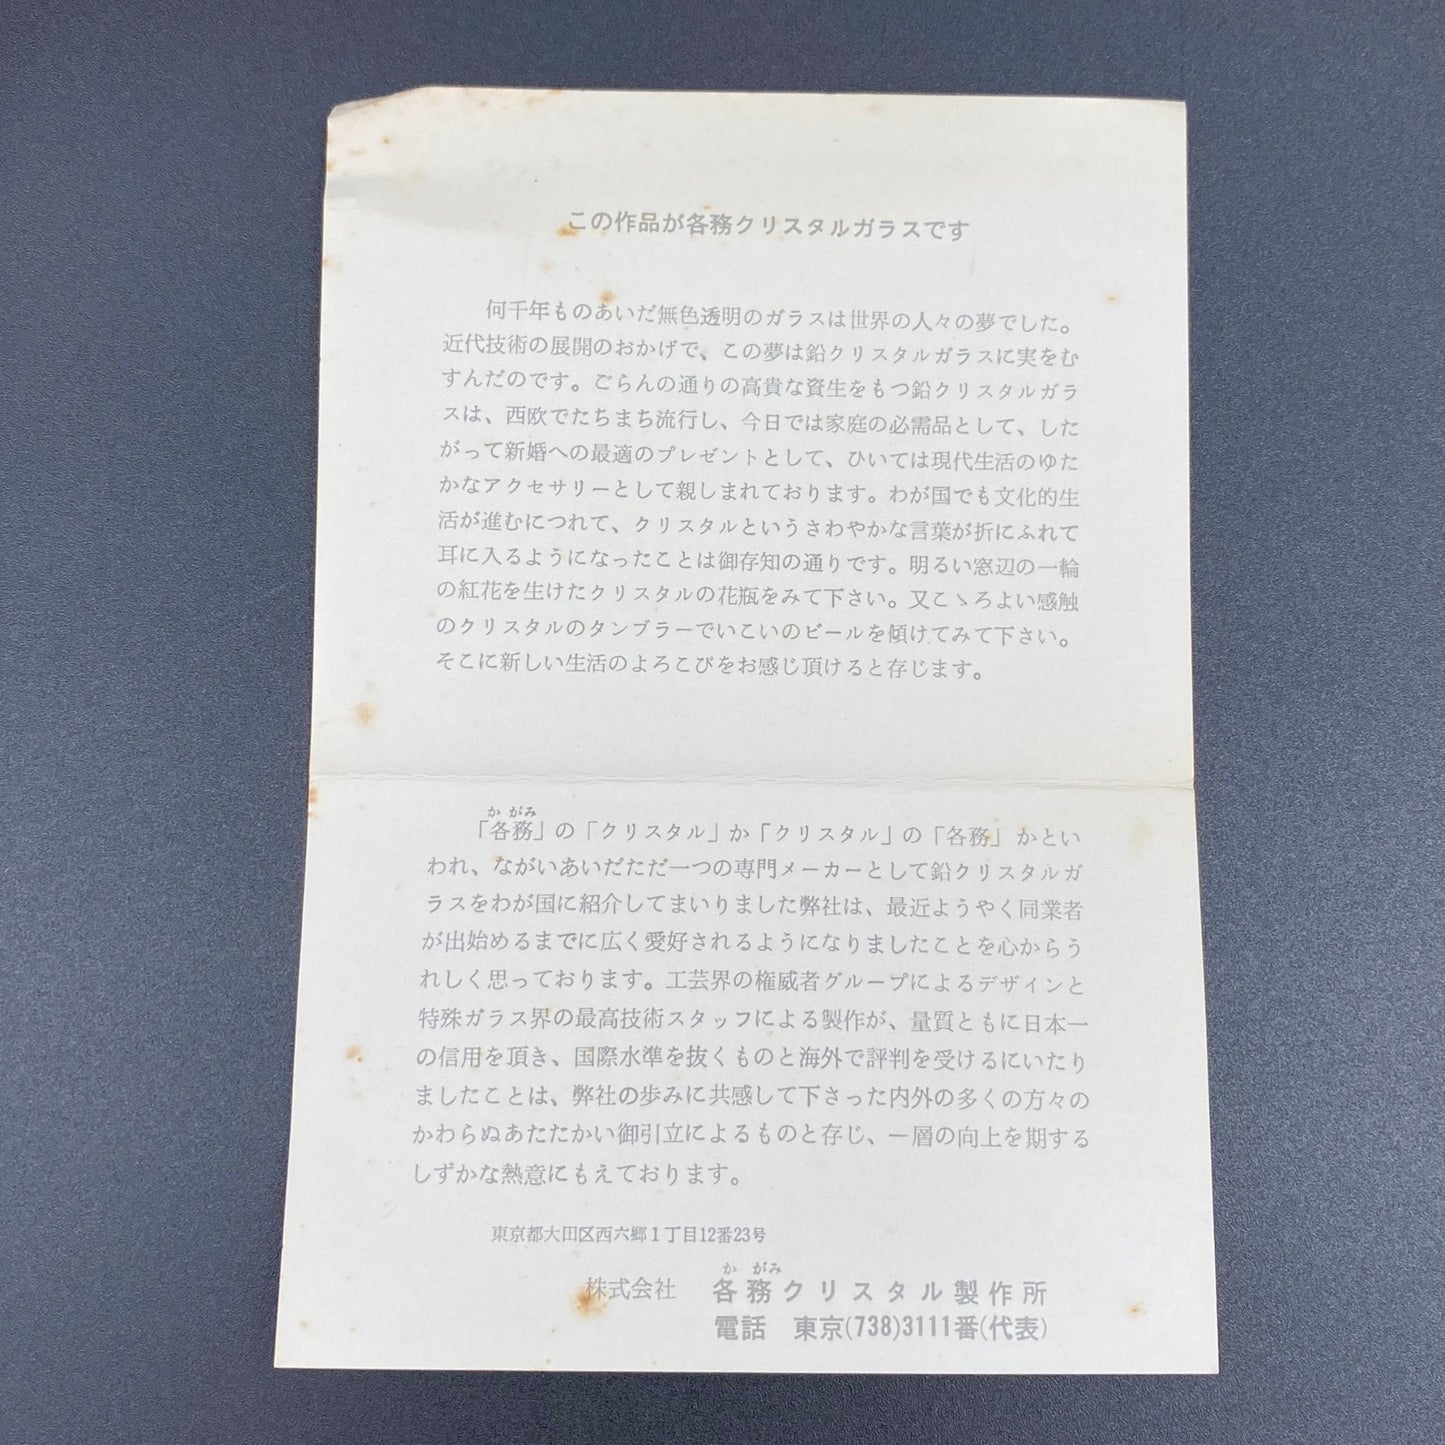 この作品が各務クリスタルガラスです
何千年ものあいだ無色透明のガラスは世界の人々の夢でした。
近代技術の展開のおかげで、この夢は鉛クリスタルガラスに実をむ
すんだのです。ごらんの通りの高貴な資生をもつ鉛クリスタルガラ
スは、西欧でたちまち流行し、今日では家庭の必需品として、した
がって新婚への最適のプレゼントとして、ひいては現代生活のゆた
かなアクセサリーとして親しまれております。わが国でも文化的生
活が進むにつれて、クリスタルというさわやかな言葉が折にふれて
耳に入るようになったことは御存知の通りです。明るい窓辺の一輪
の紅花を生けたクリスタルの花瓶をみて下さい。又こゝろよい感触
のクリスタルのタンブラーでいこいのビールを傾けてみて下さい。
そこに新しい生活のよろこびをお感じ頂けると存じます。
かがみ
「各務」の「クリスタル」か「クリスタル」の「各務」かとい
われ、ながいあいだただ一つの専門メーカーとして鉛クリスタルガ
ラスをわが国に紹介してまいりました弊社は、最近ようやく同業者
が出始めるまでに広く愛好されるようになりましたことを心からう
れしく思っております。工芸界の権威者グループによるデザインと
特殊ガラス界の最高技術スタッフによる製作が、量質ともに日本一
の信用を頂き、国際水準を抜くものと海外で評判を受けるにいたり
ましたことは、弊社の歩みに共感して下さった内外の多くの方々の
かわらぬあたたかい御引立によるものと存じ、一層の向上を期する
しずかな熱意にもえております。
東京都大田区西六郷1丁目12番23号
かがみ
株式会社 各務クリスタル製作所
電話 東京(738)3111番(代表)